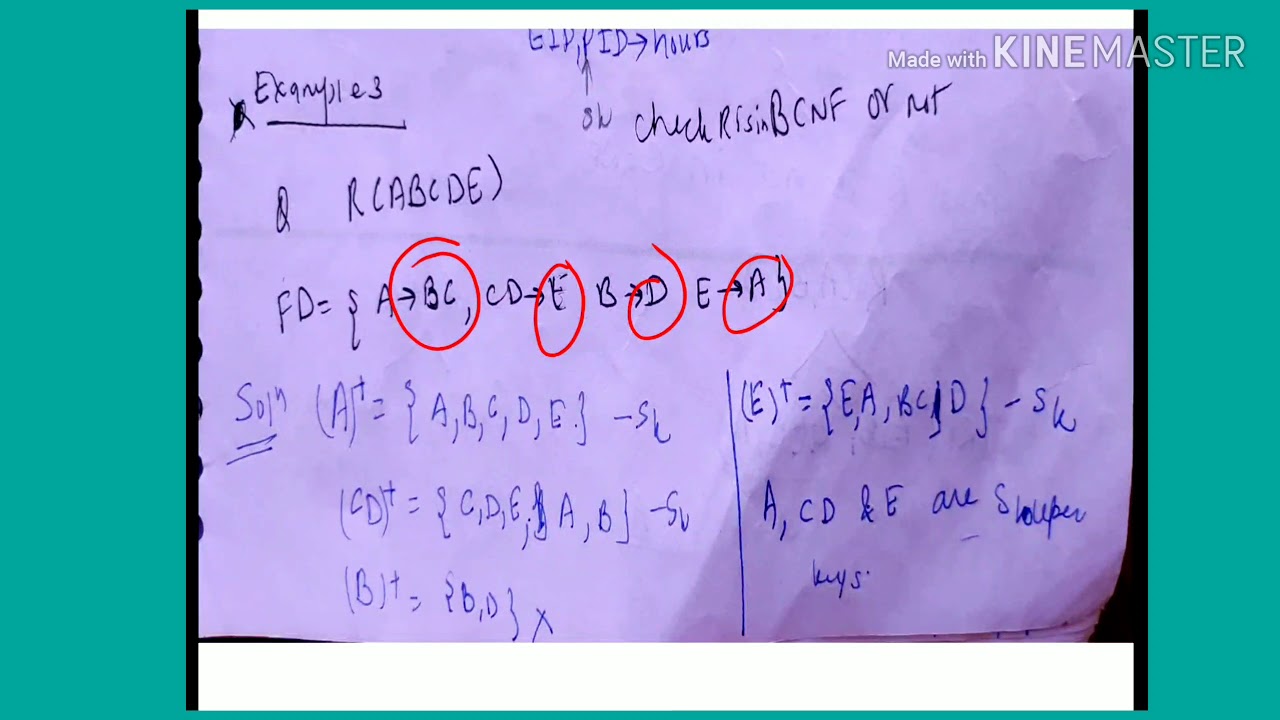 EID, PID→hours
Made with KINEMASTER
Examples
check R is in BCNF or not
Q R(ABCDE)
FD = { A→BC, CD→E B→D E→A}
Soln (A)+ = { A, B, C, D, E } - Sk
(CD)+ = { C, D, E, A, B } -
(B)+ = {B, D} X
(E)+ = {E, A, BC, D} - Sk
A, CD & E are
keys.